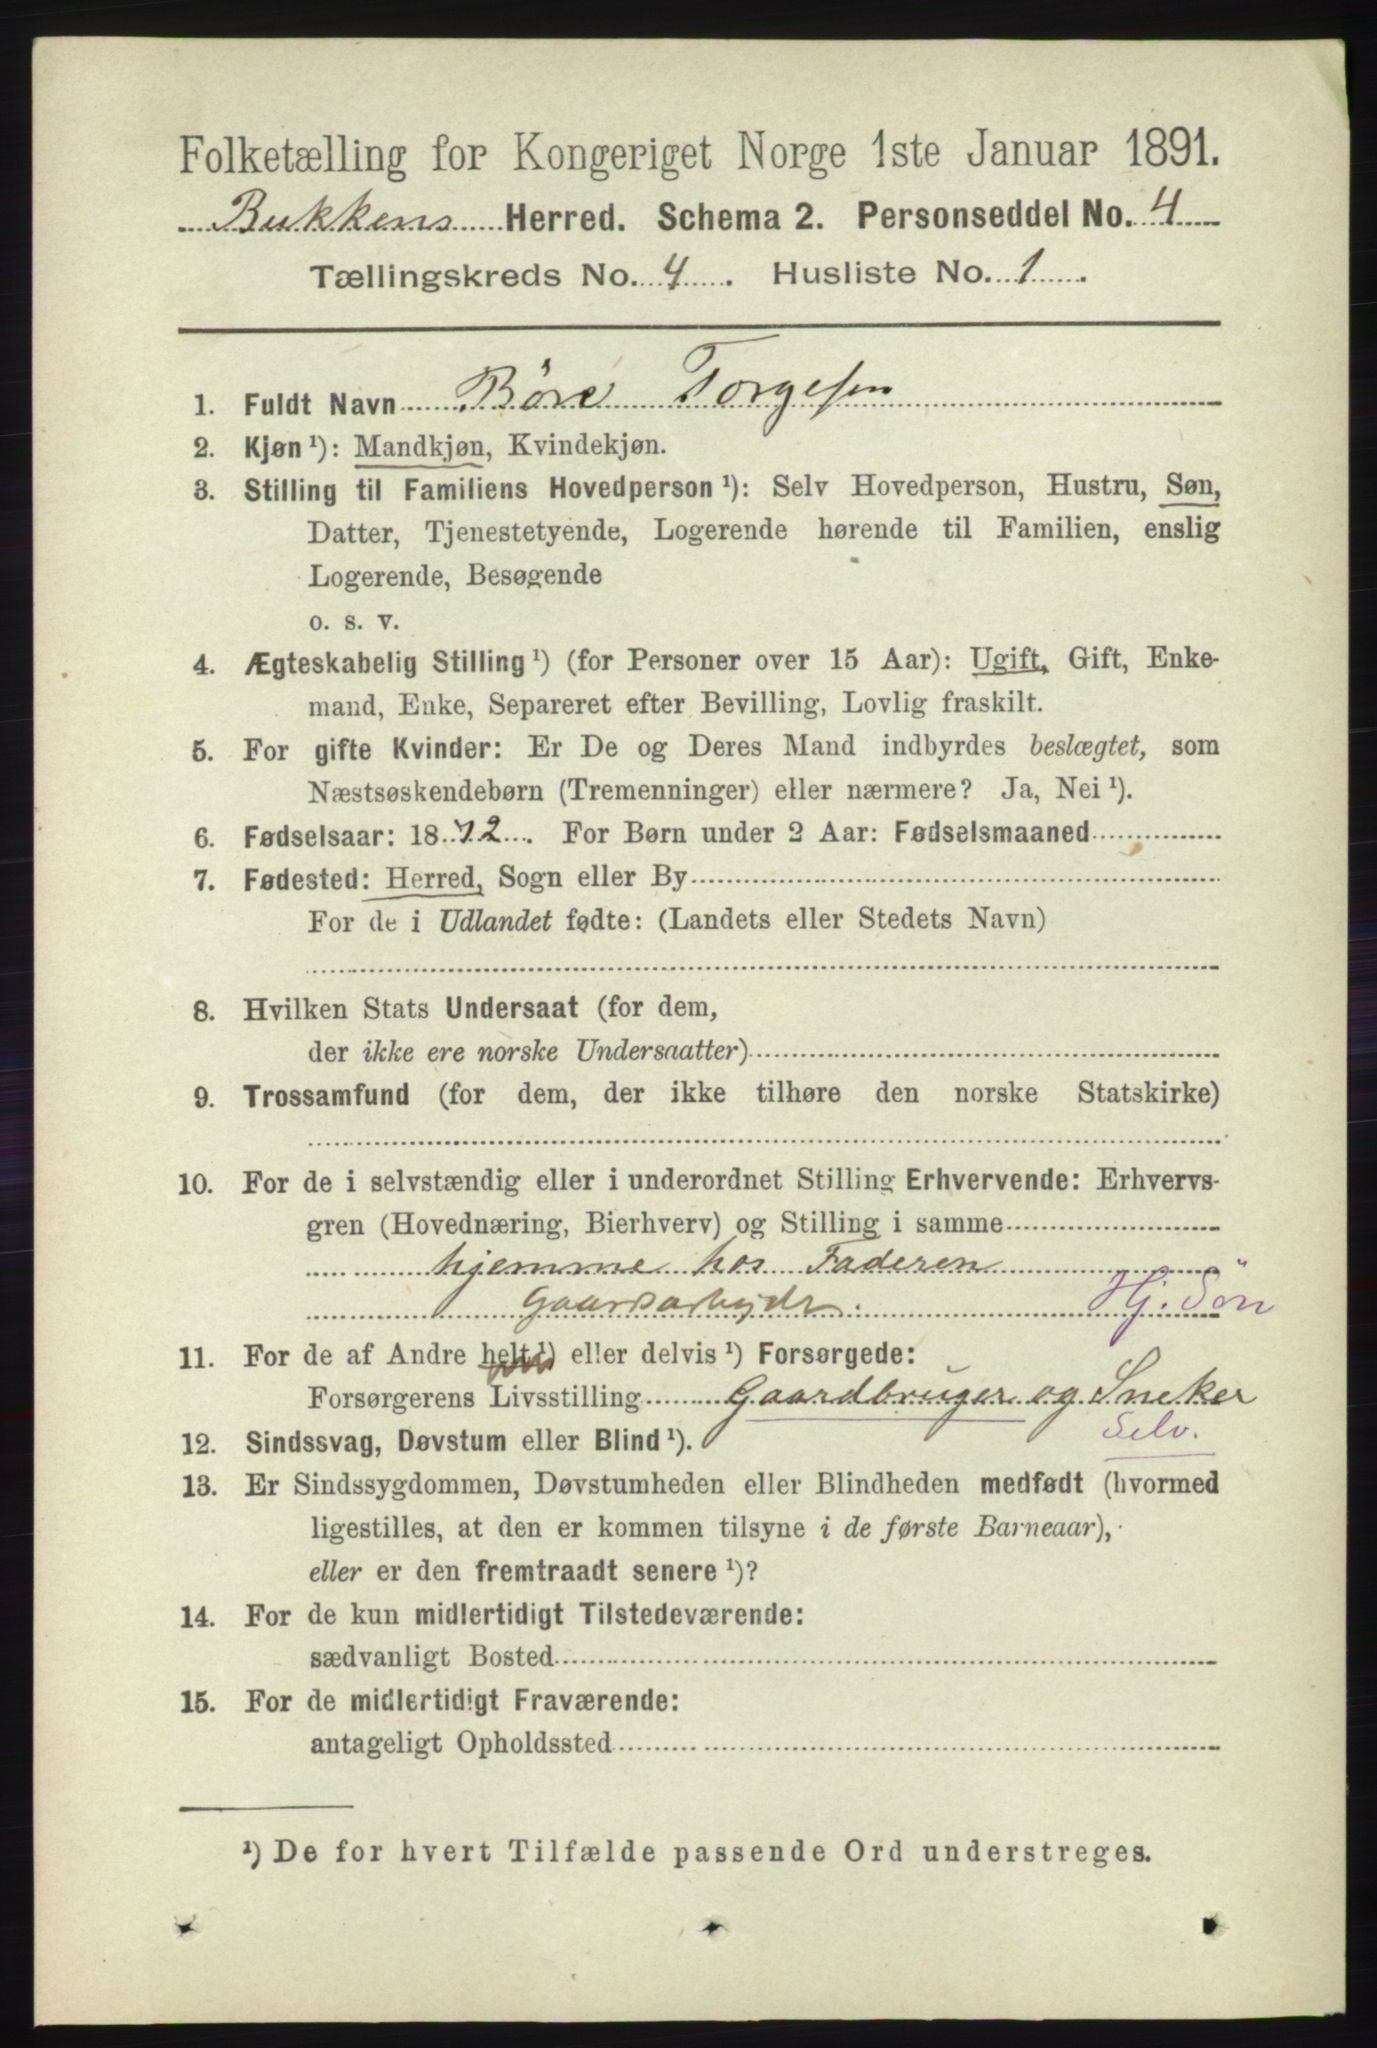 Folketælling for Kongeriget Norge 1ste Januar 1891.
Bukkens Herred. Schema 2. Personseddel No. 4
Tællingskreds No. 4. Husliste No. 1.
1. Fuldt Navn Böre Torgesen
2. Kjøn ¹): Mandkjøn, Kvindekjøn.
3. Stilling til Familiens Hovedperson ¹): Selv Hovedperson, Hustru, Søn,
Datter, Tjenestetyende, Logerende hørende til Familien, enslig
Logerende, Besøgende
o. s. v.
4. Ægteskabelig Stilling ¹) (for Personer over 15 Aar): Ugift, Gift, Enke-
mand, Enke, Separeret efter Bevilling, Lovlig fraskilt.
5. For gifte Kvinder: Er De og Deres Mand indbyrdes beslægtet, som
Næstsøskendebørn (Tremenninger) eller nærmere? Ja, Nei ¹).
6. Fødselsaar: 1872. For Børn under 2 Aar: Fødselsmaaned
7. Fødested: Herred, Sogn eller By
For de i Udlandet fødte: (Landets eller Stedets Navn)
8. Hvilken Stats Undersaat (for dem,
der ikke ere norske Undersaatter)
9. Trossamfund (for dem, der ikke tilhøre den norske Statskirke)
10. For de i selvstændig eller i underordnet Stilling Erhvervende: Erhvervs-
gren (Hovednæring, Bierhverv) og Stilling i samme
hjemme hos Faderen
Gaardsarbejde. Hj. Sön
11. For de af Andre helt ¹) eller delvis ¹) Forsørgede:
Forsørgerens Livsstilling Gaardbruger og Sneker
Selv.
12. Sindssvag, Døvstum eller Blind ¹).
13. Er Sindssygdommen, Døvstumheden eller Blindheden medfødt (hvormed
ligestilles, at den er kommen tilsyne i de første Barneaar),
eller er den fremtraadt senere ¹)?
14. For de kun midlertidigt Tilstedeværende:
sædvanligt Bosted
15. For de midlertidigt Fraværende:
antageligt Opholdssted
¹) De for hvert Tilfælde passende Ord understreges.